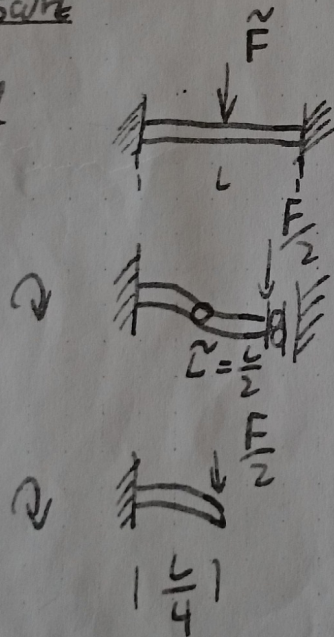 F̃
L
F/2
L̃ = L/2
F/2
| L/4 |